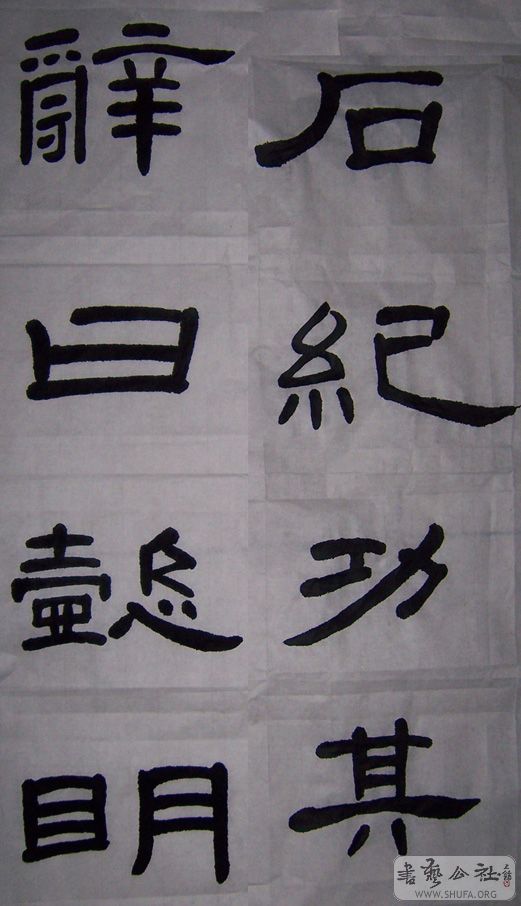 石紀功其
辭曰懿明
書藝公社
WWW.SHUFA.ORG